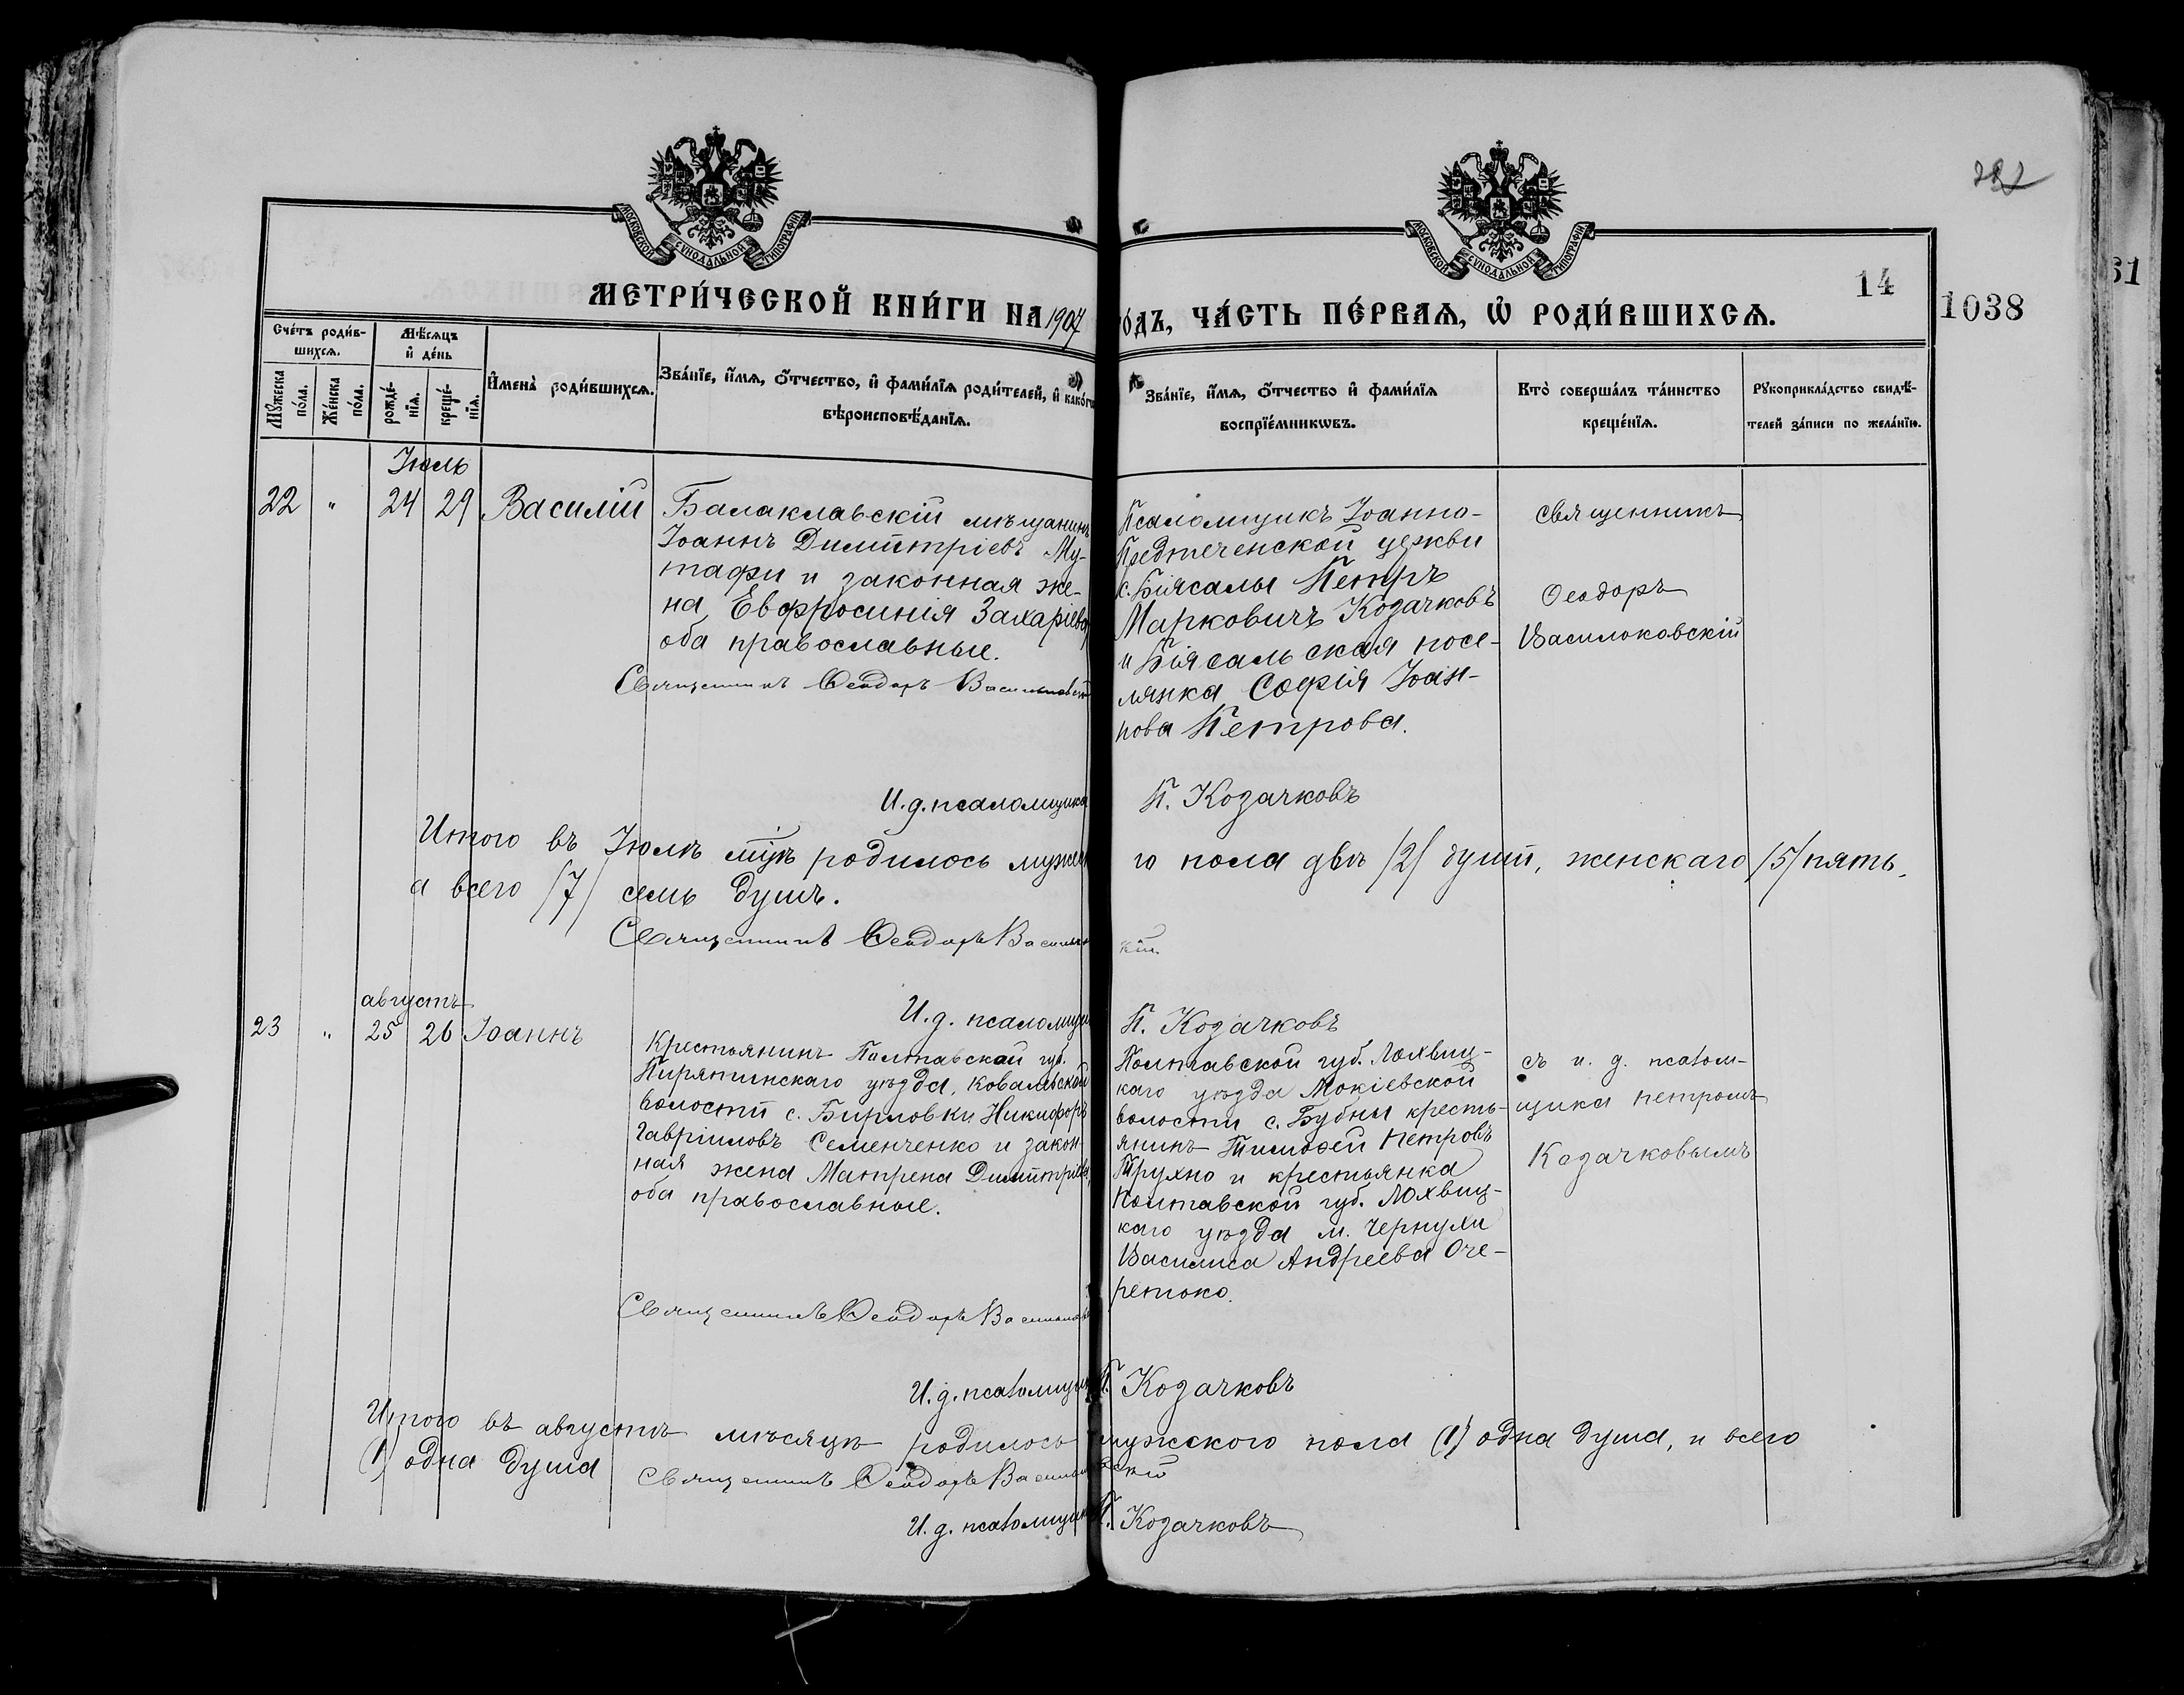 МОСКОВСКОЙ СѴНОДАЛЬНОЙ ТИПОГРАФІИ
МОСКОВСКОЙ СѴНОДАЛЬНОЙ ТИПОГРАФІИ
14
1038
61
МЕТРИ́ЧЕСКОЙ КНИ́ГИ НА 1907
о́дъ, ЧА́СТЬ ПЕ́РВАѦ, Ѡ҆ РОДИ́ВШИХСѦ.
Сче́тъ роди́в-
шихсѧ.
Мꙋ́жеска
по́ла.
Же́нска
по́ла.
Мѣ́сѧцъ
и҆ де́нь
рожде́-
нїѧ.
креще́-
нїѧ.
И҆мена̀ роди́вшихсѧ.
Зва́нїе, и҆́мѧ, ѻ҆́тчество, и҆ фами́лїѧ роди́телей, и҆ како́гѡ
вѣроисповѣ́данїѧ.
Зва́нїе, и҆́мѧ, ѻ҆́тчество и҆ фами́лїѧ
воспрїе́мникѡвъ.
Кто̀ соверша́лъ та́инство
креще́нїѧ.
Рꙋкоприкла́дство свидѣ́-
телей за́писи по жела́нїю.
Іюль
22 " 24 29 Василій
Балаклавскій мѣщанинъ
Іоаннъ Димитріевъ Му-
тафи и законная же-
на, Евфросинія Захаріева
оба православные.
Священникъ Ѳеодоръ Васильковск
Псаломщикъ Іоанно-
Предтеченской церкви
с. Біясалы Петръ
Марковичъ Козачковъ
и Біясальская посе-
лянка Софія Іоан-
нова Петрова.
священникъ
Ѳеодоръ
Васильковскій
И. д. псаломщика П. Козачковъ
Итого въ Іюлѣ мцѣ родилось мужска го пола двѣ /2/ души, женскаго /5/ пять,
а всего /7/ семь душъ.
Священникъ Ѳеодоръ Васильковс кій
И. д. псаломщи П. Козачковъ
августъ
23 " 25 26 Іоаннъ
Крестьянинъ Полтавской губ.
Пирятинскаго уѣзда, Ковалевской
волости с. Бирловки Никифоръ
Гавріиловъ Семенченко и закон-
ная жена Матрена Димитріева,
оба православные.
Полтавской губ. Лохвиц-
каго уѣзда Мокіевской
волости с. Бубны кресть-
янинъ Тимоѳей Петровъ
Трухно и крестьянка
Полтавской губ. Лохвиц-
каго уѣзда м. Чернухи
Василиса Андреева Оче-
ретько.
съ и. д. псалом-
щика Петромъ
Козачковымъ
Священникъ Ѳеодоръ Васильков
И. д. псаломщика П. Козачковъ
Итого въ августѣ мѣсяцѣ родилось мужского пола (1) одна душа, и всего
(1) одна душа
Священникъ Ѳеодоръ Васильковскій
И. д. псаломщика П. Козачковъ